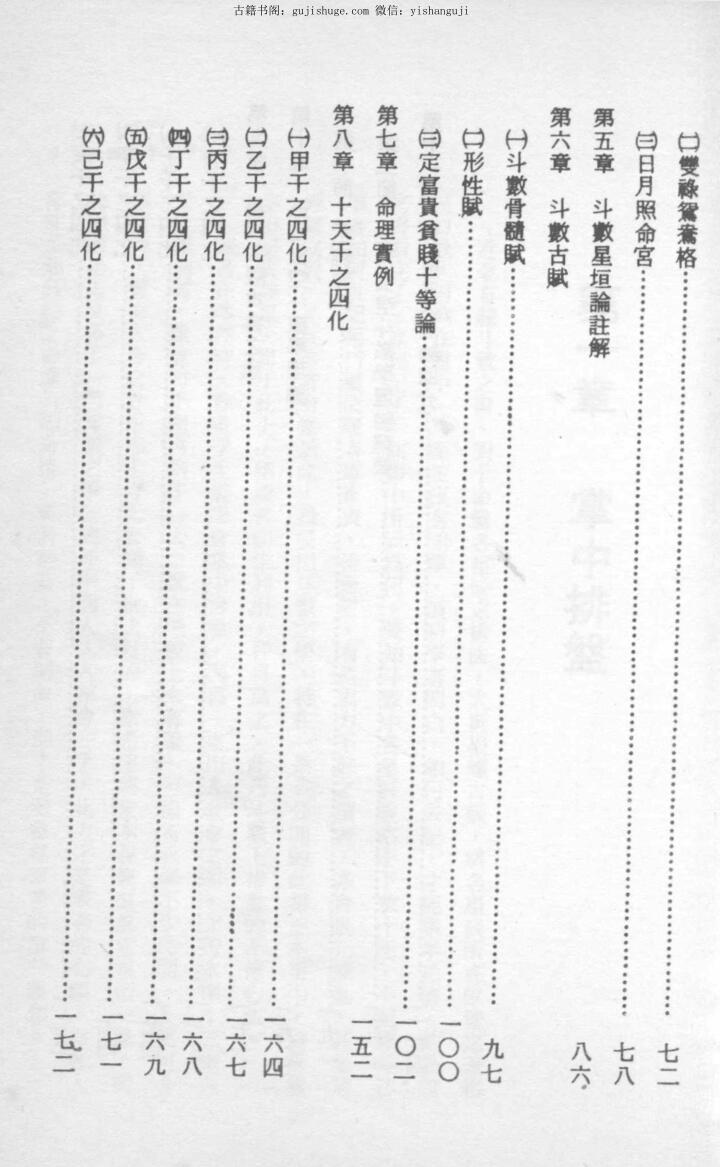 古籍书阁：gujishuge.com 微信：yishanguji
㈡雙祿鴛鴦格……七二
㈢日月照命宮……七八
第五章 斗數星垣論註解 八六
第六章 斗數古賦
㈠斗數骨髓賦……九七
㈡形性賦……一〇〇
㈢定富貴貧賤十等論……一〇二
第七章 命理實例 一五二
第八章 十天干之四化
㈠甲干之四化……一六四
㈡乙干之四化……一六七
㈢丙干之四化……一六八
㈣丁干之四化……一六九
㈤戊干之四化……一七一
㈥己干之四化……一七二